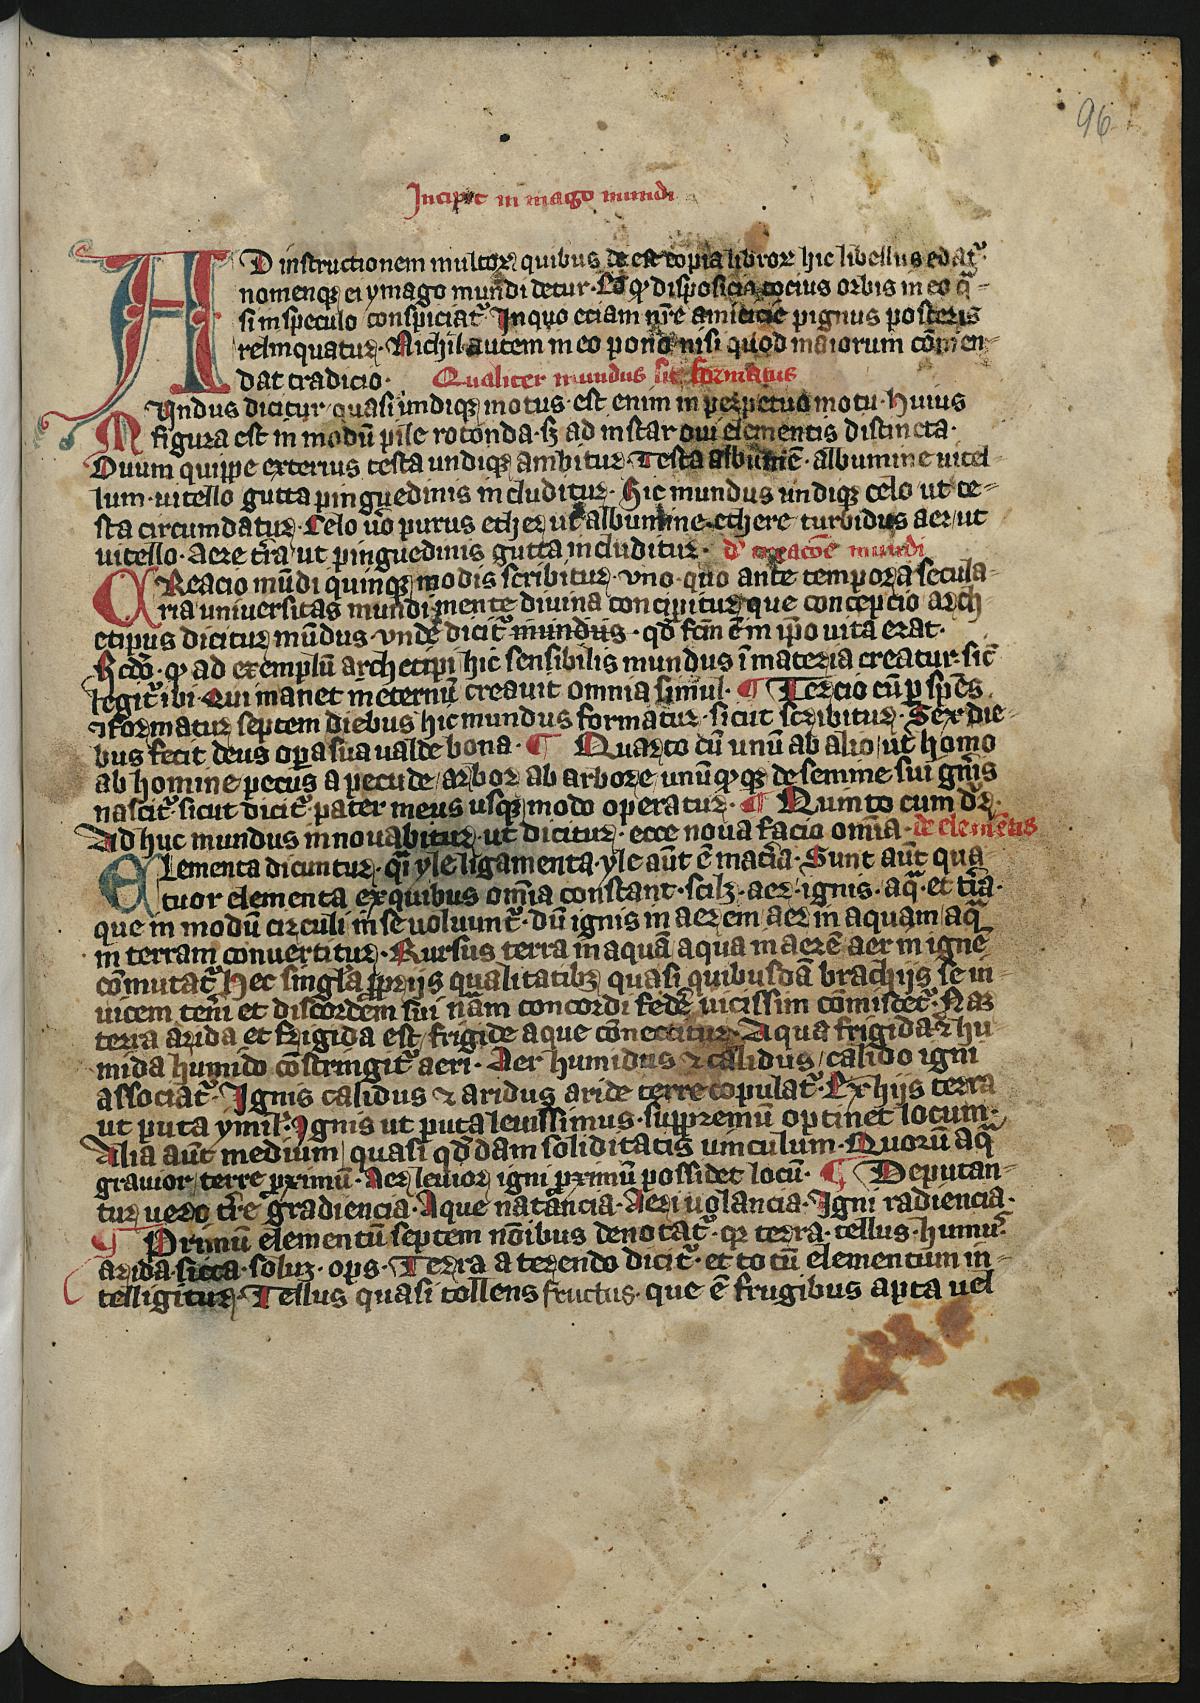 96
Incipit in mago mundi
AD instructionem multoꝝ quibus de est copia libroꝝ hic libellus edat᷑
nomenqꝫ ei ymago mundi detur. Eo qꝫ disposicio tocius orbis in eo q̃-
si in speculo conspiciat᷑ In quo eciam nr̃e amicicie pignus posteris
relinquatur. Nichil autem in eo pono nisi quod maiorum cōmen-
dat tradicio. Qualiter mundus sit formatus
Mundus dicitur quasi undiqꝫ motus. est enim in perpetuo motu. Huius
figura est in modū pile rotonda. sꝫ ad instar oui elementis distincta.
Ouum quippe exterius testa undiqꝫ ambitur. Testa albumē. albumine uitel-
lum. uitello gutta pinguedinis includitur. Sic mundus undiqꝫ celo ut te-
sta circumdatur. Celo uo purus ether ut albumine. ethere turbidus aer ut
uitello. Aere tr̃a ut pinguedinis gutta includitur. d' creacōe mundi
CReacio mūdi quinqꝫ modis scribitur. vno quo ante tempora secula-
ria uniuersitas mundi mente diuina concipitur que concepcio arch-
etipus dicitur mūdus. vnde dicit᷑ mundus. qd̄ fcm̄ ē in ip̄o uita erat.
Scdō. qꝫ ad exemplū archetipi hic sensibilis mundus ī materia creatur. sic̄
legit᷑ ibi. Qui manet in eternū creauit omnia simul. ¶ Tercio cū p sp̄es
⁊ formatur septem diebus hic mundus formatur. sicut scribitur. Sex die-
bus fecit deus opera sua ualde bona. ¶ Quarto cū unū ab alio ut homo
ab homine pecus a pecude arbor ab arbore unūqꝫqꝫ de semine sui gn̄is
nascit᷑. sicut dicit᷑ pater meus usqꝫ modo operatur. ¶ Quinto cum
Adhuc mundus innouabitur. ut dicitur. ecce noua facio omīa. de elemētis
ELementa dicuntur. q̃i yle ligamenta. yle aūt ē mat̃ia. Sunt aūt qua
tuor elementa ex quibus omīa constant. scilꝫ. aer. ignis. aq̃. et tr̃a.
que in modū circuli in se uoluunt᷑. dū ignis in aerem aer in aquam aq̃
in terram conuertitur. Rursus terra in aquā aqua in aerē aer in ignē
cōmutat᷑ Hec singl̃a ꝓprijs qualitatibꝫ quasi quibusdā brachijs se in-
uicem teñt et discordem sui nām concordi federe uicissim cōmiscet᷑. Naꝫ
terra arida et frigida est frigide aque cōnectitur. Aqua frigida ⁊ hu-
mida humido cōstringit᷑ aeri. Aer humidus ⁊ calidus calido igni
associat᷑. Ignis calidus ⁊ aridus aride terre copulat᷑. Ex hijs terra
ut puta ymil᷑. Ignis ut puta leuissimus. suppremū optinet locum.
Alia aūt medium quasi qd̄dam soliditatis uinculum. Quorū aq̃
grauior terre ꝓximū. Aer leuior igni ꝓximū possidet locū. ¶ Deputan-
tur uero tr̃e gradiencia. Aque natancia. Aeri uolancia. Igni radiencia.
¶ Primū elementū septem nōibus denotat᷑. qꝛ terra. tellus. humus.
arida. sicca. soluꝫ. ops. Terra a terendo dicit᷑. et totū elementum in-
telligitur. Tellus quasi tollens fructus. que ē frugibus apta uel